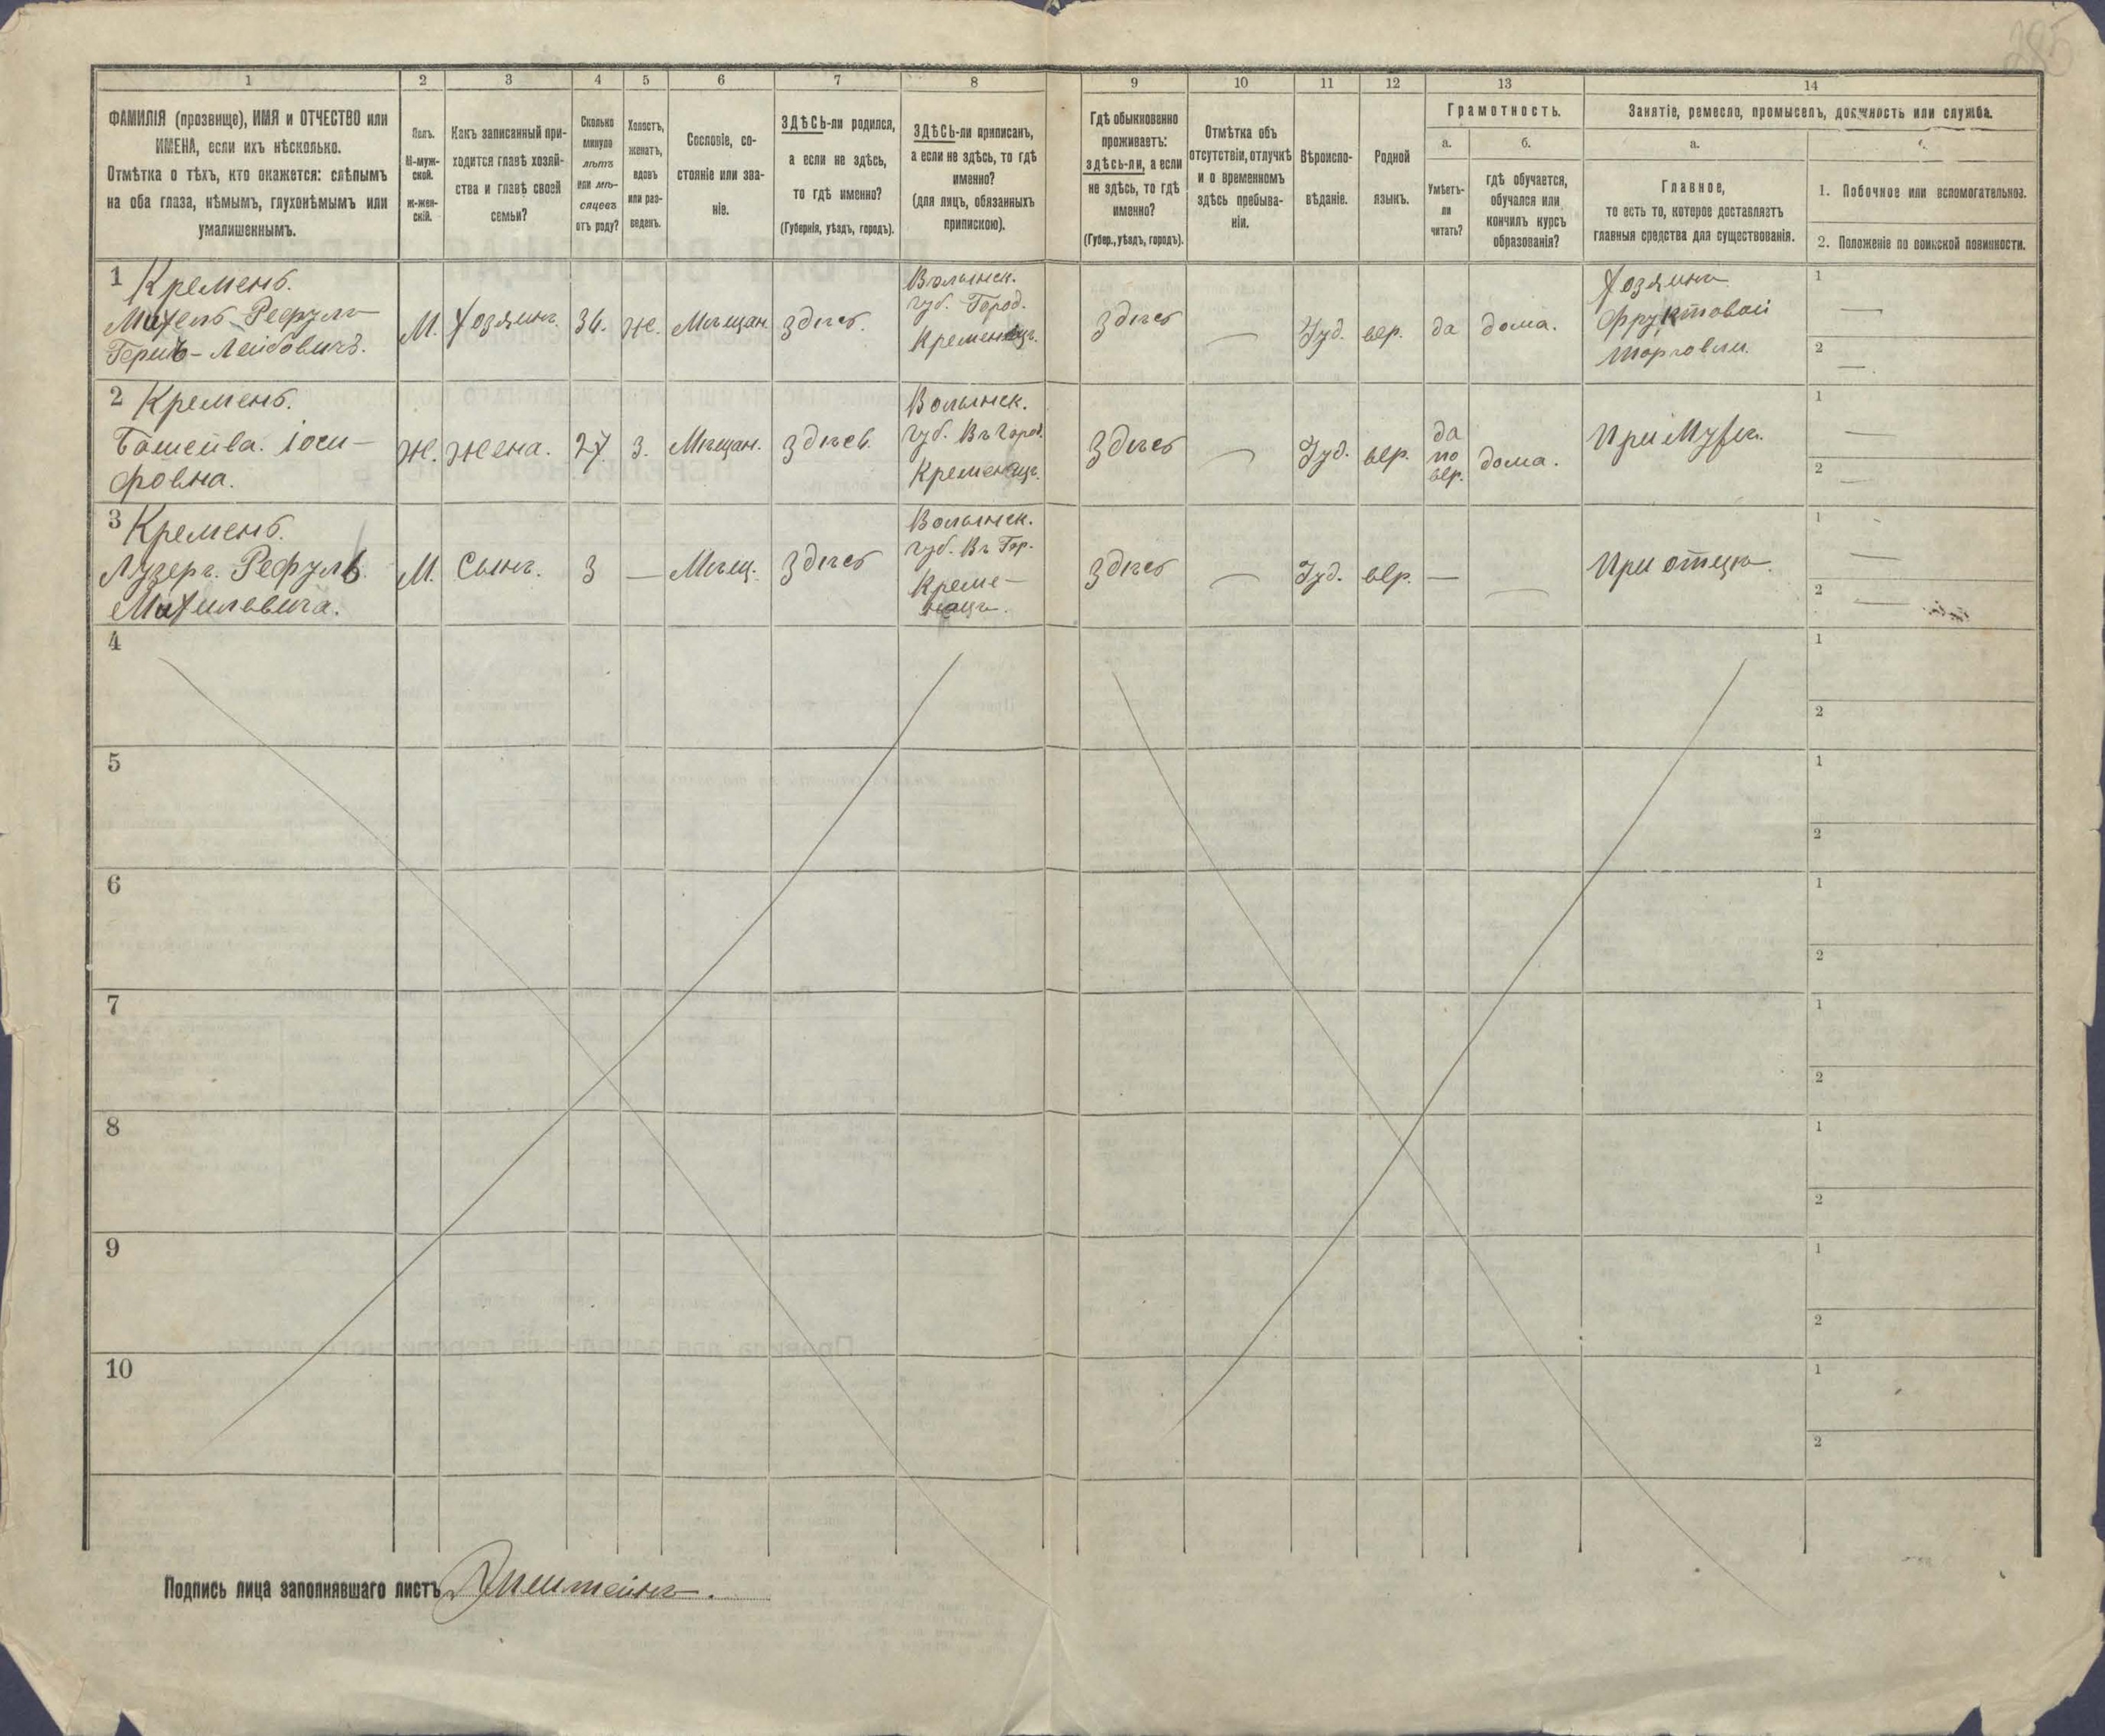 285
1
2
3
4
5
6
7
8
9
10
11
12
13
14
ФАМИЛІЯ (прозвище), ИМЯ и ОТЧЕСТВО или
ИМЕНА, если ихъ нѣсколько.
Отмѣтка о тѣхъ, кто окажется: слѣпымъ
на оба глаза, нѣмымъ, глухонѣмымъ или
умалишеннымъ.
Полъ.
М-муж-
ской.
Ж-жен-
скій.
Какъ записанный при-
ходится главѣ хозяй-
ства и главѣ своей
семьи?
Сколько
минуло
лѣтъ
или мѣ-
сяцевъ
отъ роду?
Холостъ,
женатъ,
вдовъ
или раз-
веденъ.
Сословіе, со-
стояніе или зва-
ніе.
ЗДѢСЬ-ли родился,
а если не здѣсь,
то гдѣ именно?
(Губернія, уѣздъ, городъ).
ЗДѢСЬ-ли приписанъ,
а если не здѣсь, то гдѣ
именно?
(для лицъ, обязанныхъ
припискою).
Гдѣ обыкновенно
проживаетъ:
здѣсь-ли, а если
не здѣсь, то гдѣ
именно?
(Губер., уѣздъ, городъ).
Отмѣтка объ
отсутствіи, отлучкѣ
и о временномъ
здѣсь пребыва-
ніи.
Вѣроиспо-
вѣданіе.
Родной
языкъ.
Грамотность.
а.
Умѣетъ-
ли
читать?
б.
гдѣ обучается,
обучался или
кончилъ курсъ
образованія?
Занятіе, ремесло, промыселъ, должность или служба.
а.
Главное,
то есть то, которое доставляетъ
главныя средства для существованія.
1. Побочное или вспомогательное.
2. Положеніе по воинской повинности.
1 Кремень.
Михель-Рефулъ
Герш-Лейбовичъ.
М.
Хозяинъ.
34.
Ж.
Мѣщан.
Здѣсь.
Волынск.
губ. Город.
Кременецъ.
Здѣсь
—
Іуд.
евр.
да
дома.
Хозяинъ
фруктовой
торговли.
1
—
2
—
2 Кремень.
Башейва. Іоси-
фовна.
Ж.
Жена.
27
З.
Мѣщан.
Здѣсь.
Волынск.
губ. Въ город.
Кременецъ.
Здѣсь
—
Іуд.
евр.
да
по
евр.
дома.
При Мужѣ.
1
—
2
—
3 Кремень.
Лузеръ. Рефулъ
Михилевича.
М.
Сынъ.
3
—
Мѣщ.
Здѣсь
Волынск.
губ. Въ Гор.
Креме-
нецъ.
Здѣсь
—
Іуд.
евр.
—
—
При отцѣ.
1
—
2
—
4
1
2
5
1
2
6
1
2
7
1
2
8
1
2
9
1
2
10
1
2
Подпись лица заполнявшаго листъ